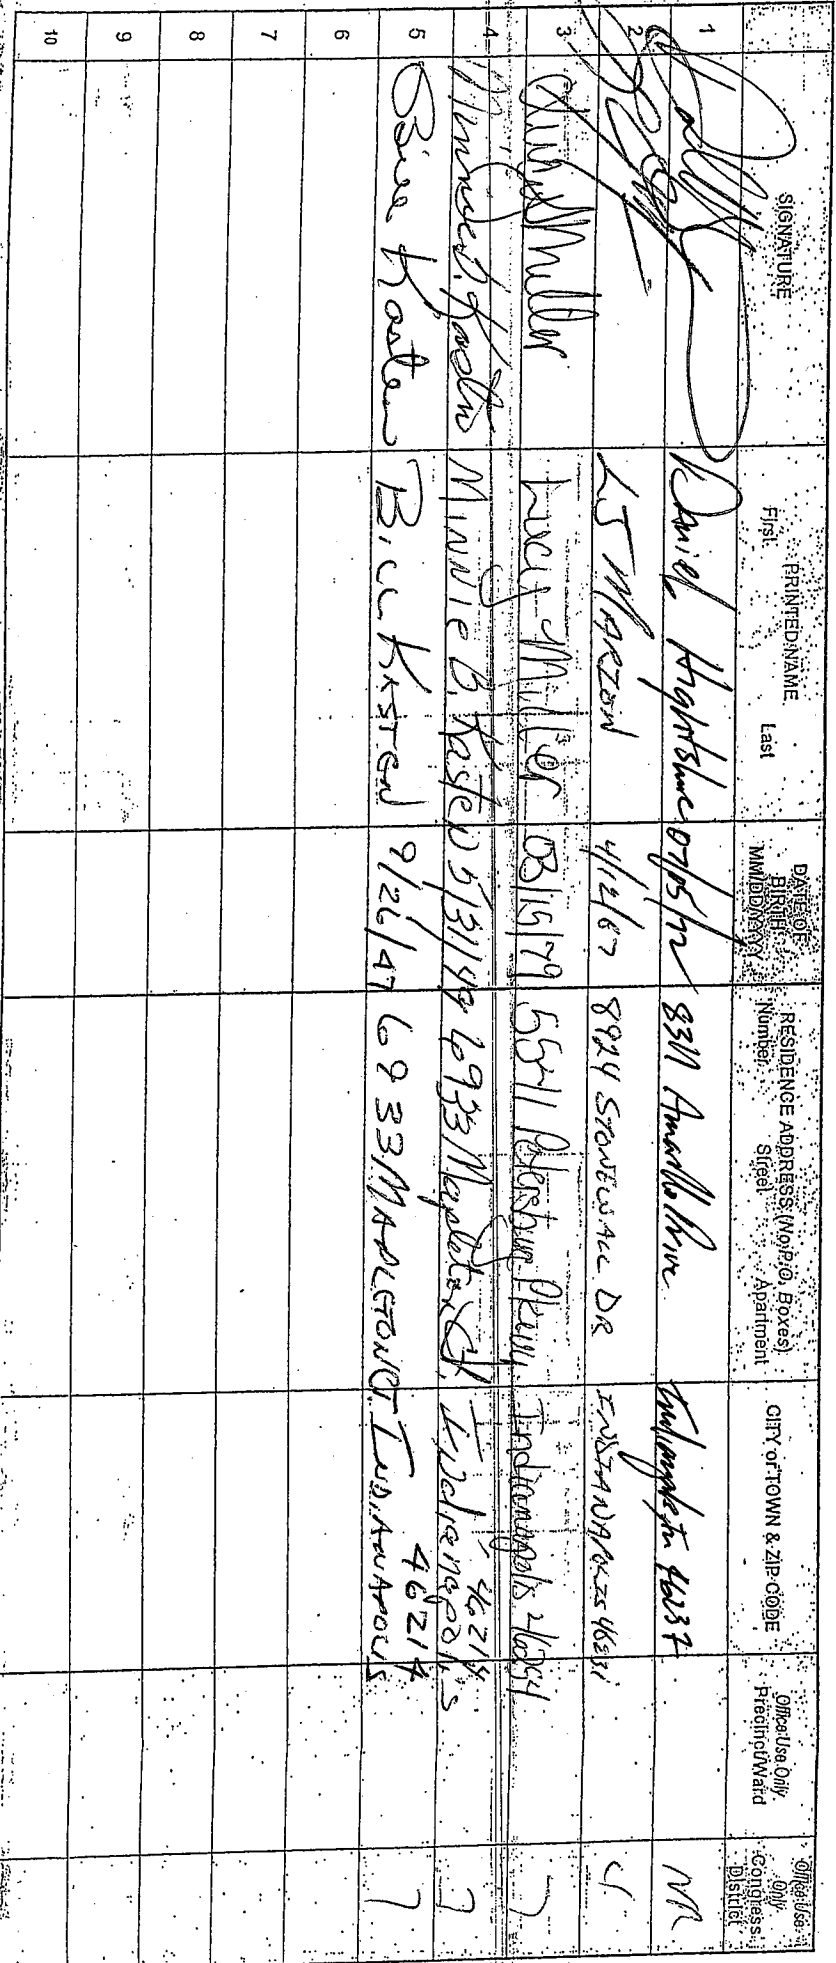 SIGNATURE
PRINTED NAME
First Last
DATE OF BIRTH
MM/DD/YYYY
RESIDENCE ADDRESS (No P.O. Boxes)
Number Street Apartment
CITY or TOWN & ZIP CODE
Office Use Only
Precinct/Ward
Office Use Only
Congress District
1 Daniel Hightshue 8311 Amarillo Drive 46237 NR
2 LJ MARZON 4/12/67 8924 STONEWALL DR 46231 4
3 Lucy Miller 03/15/79 Indianapolis 46254 7
4 Minnie B. Kasten Minnie B. Kasten 5/31/49 6933 Mapleton Ct. Indianapolis 46214 7
5 Bill Kasten BILL KASTEN 9/26/47 6933 MAPLETON CT INDIANAPOLIS 46214 7
6
7
8
9
10